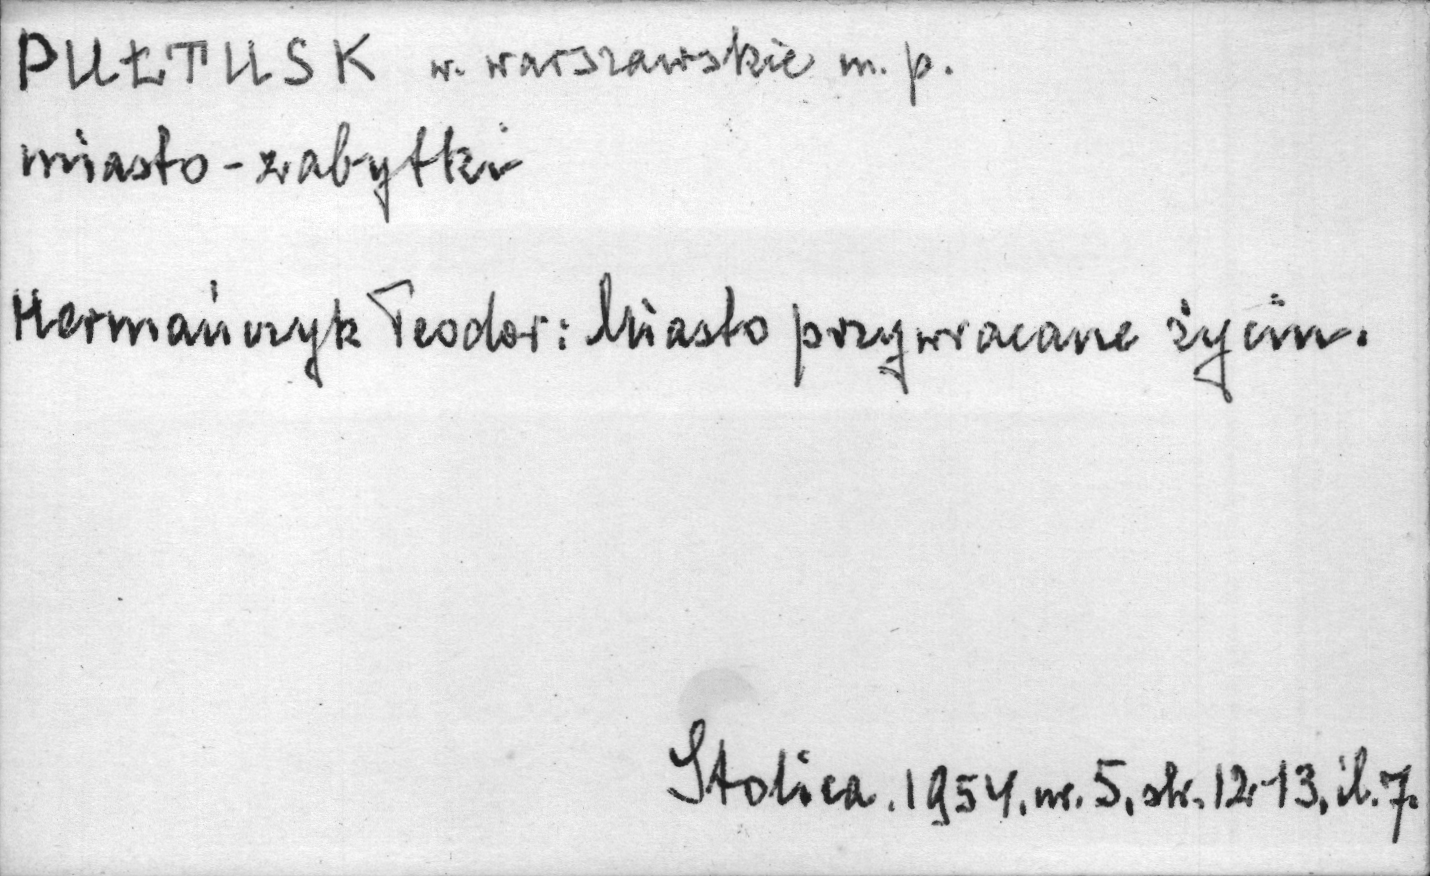 PUŁTUSK w. warszawskie m. p.
miasto - zabytki
Hermańczyk Teodor: Miasto przywracane życiu.
Stolica. 1954, nr. 5, str. 12-13, il. 7.